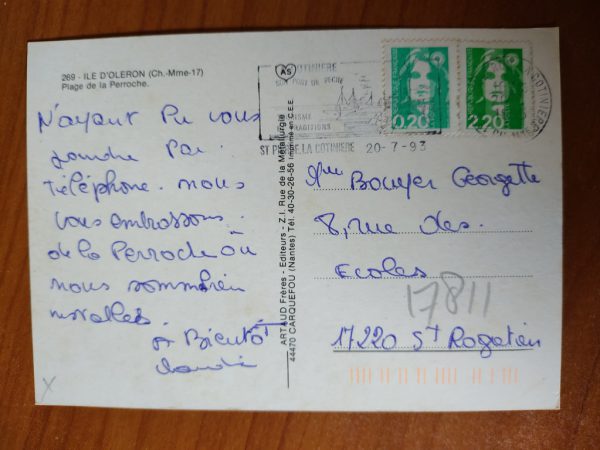 269 - ILE D'OLERON (Ch.-Mme-17)
Plage de la Perroche.
N'ayant Pu vous
joindre Par
téléphone. nous
vous embrassons.
de la Perroche où
nous sommes bien
installés.
A Bientôt
ARTAUD Frères - Editeurs - Z.I. Rue de la Métallurgie
44470 CARQUEFOU (Nantes) Tél. 40-30-26-56 Imprimé en C.E.E.
AS
COTINIERE
SON PORT DE PECHE
TRADITIONS
ST PIERRE LA COTINIERE 20-7-93
0,20
2,20
Bouyer Georgette
8, rue des.
Ecoles
17811
17220 St Rogatien